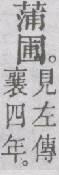 蒲圃。
見左傳
襄四年。